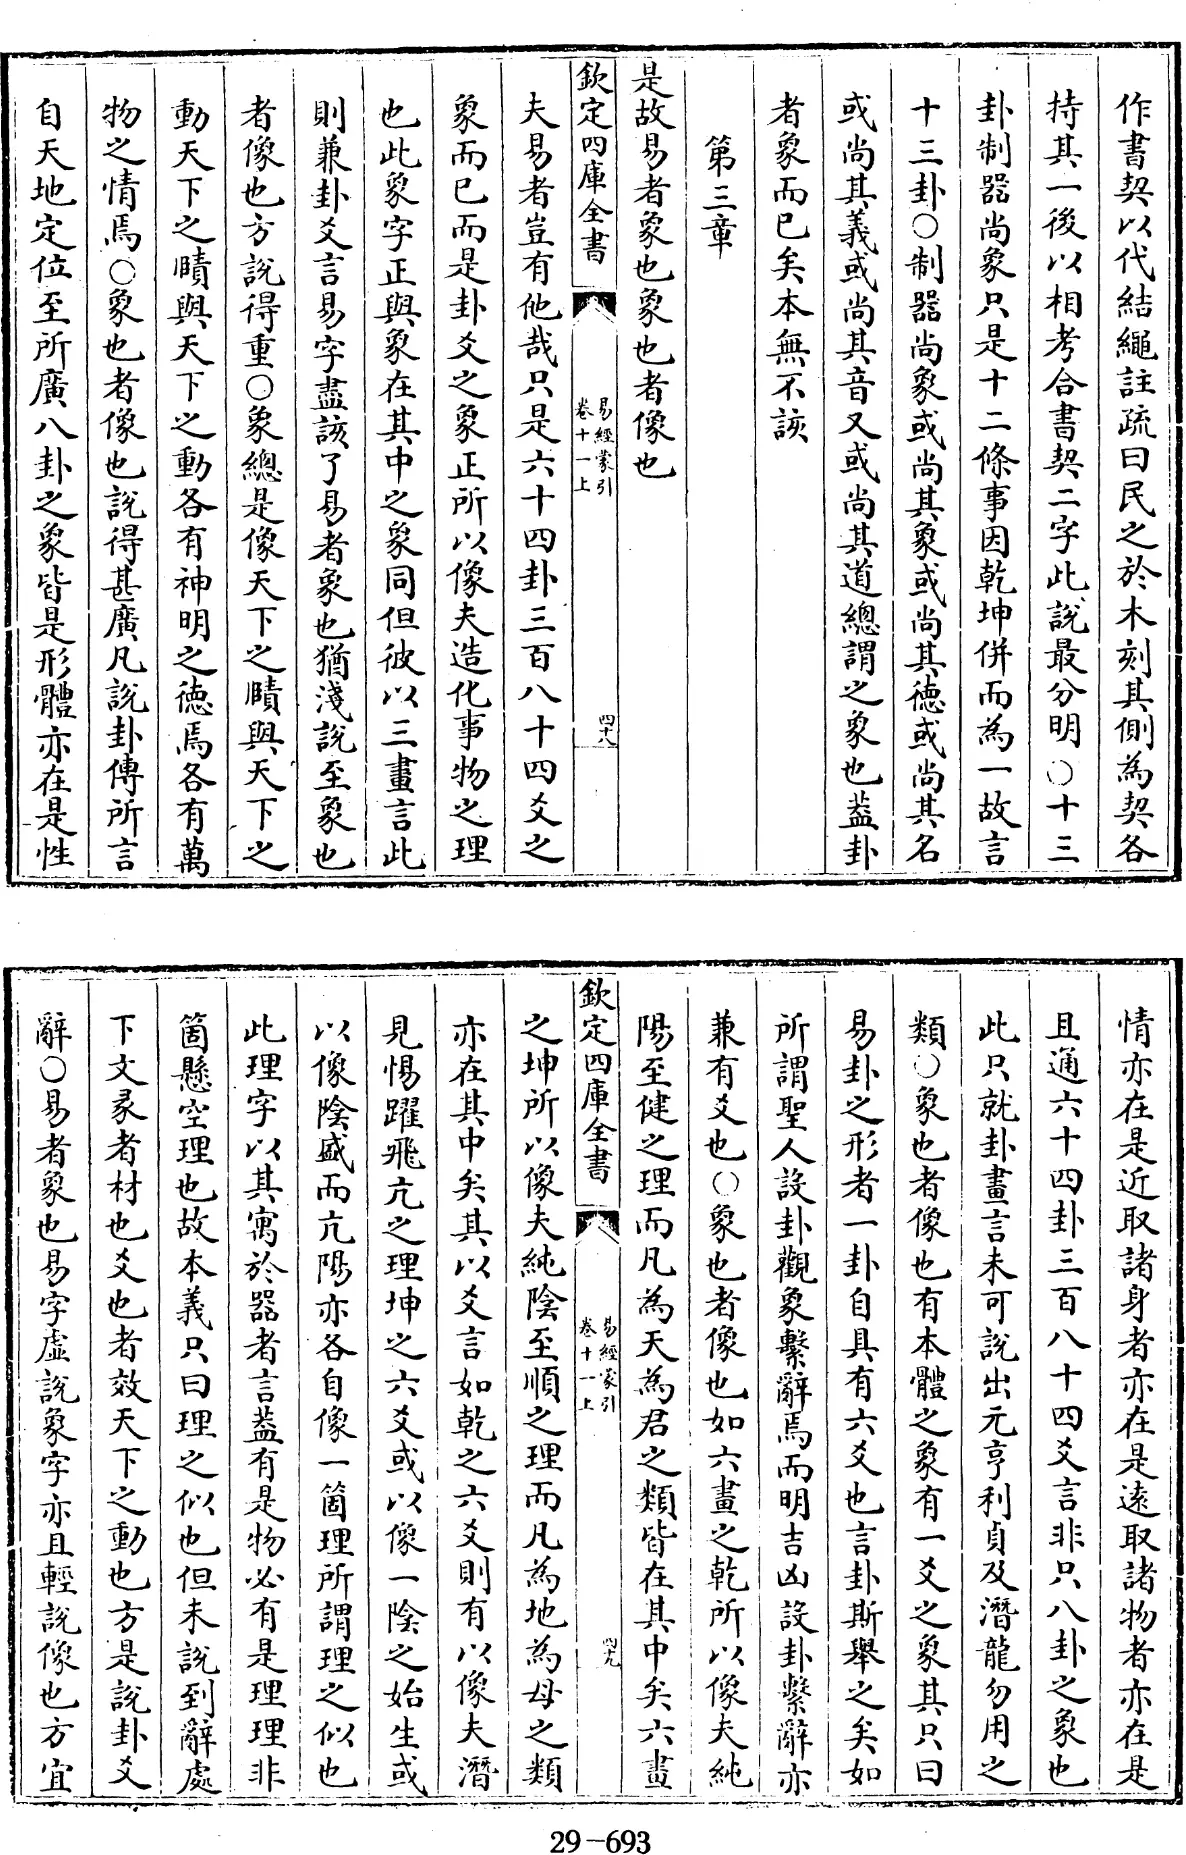 作書契以代結繩註疏曰民之於木刻其側為契各
持其一後以相考合書契二字此說最分明○十三
卦制器尚象只是十二條事因乾坤併而為一故言
十三卦○制器尚象或尚其象或尚其德或尚其名
或尚其義或尚其音又或尚其道總謂之象也葢卦
者象而已矣本無不該
第三章
是故易者象也象也者像也
欽定四庫全書
易經蒙引
卷十一上
四十八
夫易者豈有他哉只是六十四卦三百八十四爻之
象而已而是卦爻之象正所以像夫造化事物之理
也此象字正與象在其中之象同但彼以三畫言此
則兼卦爻言易字盡該了易者象也猶淺說至象也
者像也方說得重○象總是像天下之賾與天下之
動天下之賾與天下之動各有神明之德焉各有萬
物之情焉○象也者像也說得甚廣凡說卦傳所言
自天地定位至所廣八卦之象皆是形體亦在是性
情亦在是近取諸身者亦在是遠取諸物者亦在是
且通六十四卦三百八十四爻言非只八卦之象也
此只就卦畫言未可說出元亨利貞及潛龍勿用之
類○象也者像也有本體之象有一爻之象其只曰
易卦之形者一卦自具有六爻也言卦斯舉之矣如
所謂聖人設卦觀象繫辭焉而明吉凶設卦繫辭亦
兼有爻也○象也者像也如六畫之乾所以像夫純
陽至健之理而凡為天為君之類皆在其中矣六畫
欽定四庫全書
易經蒙引
卷十一上
四十九
之坤所以像夫純陰至順之理而凡為地為母之類
亦在其中矣其以爻言如乾之六爻則有以像夫潛
見惕躍飛亢之理坤之六爻或以像一陰之始生或
以像陰盛而亢陽亦各自像一箇理所謂理之似也
此理字以其寓於器者言葢有是物必有是理理非
箇懸空理也故本義只曰理之似也但未說到辭處
下文彖者材也爻也者效天下之動也方是說卦爻
辭○易者象也易字虛說象字亦且輕說像也方宜
29-693